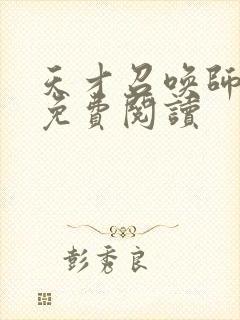 天才召喚師
免費閱讀
彭秀良